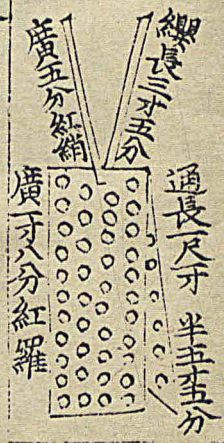 纓長三寸五分
廣五分紅綃
通長一尺一寸 半五寸五分
廣一寸八分紅羅